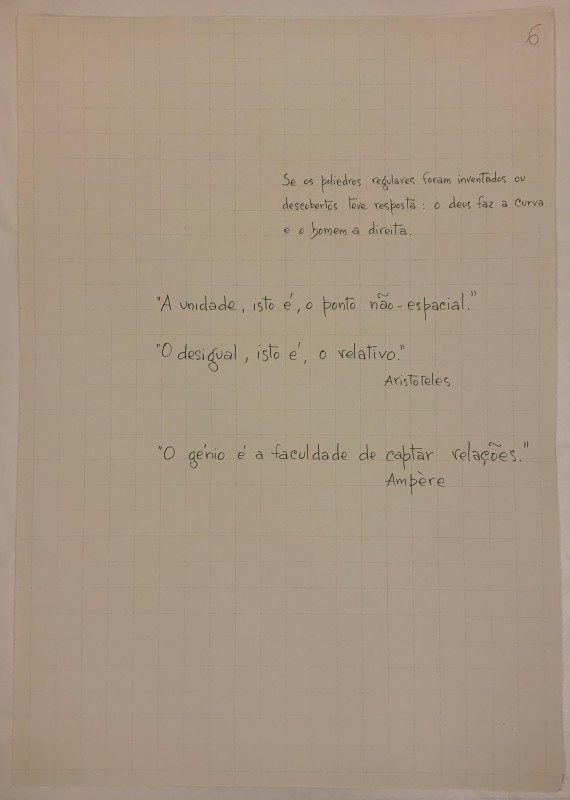 6
Se os poliedros regulares foram inventados ou
descobertos teve resposta: o deus faz a curva
e o homem a direita.
"A unidade, isto é, o ponto não-espacial."
"O desigual, isto é, o relativo."
Aristoteles
"O génio é a faculdade de captar relações."
Ampère